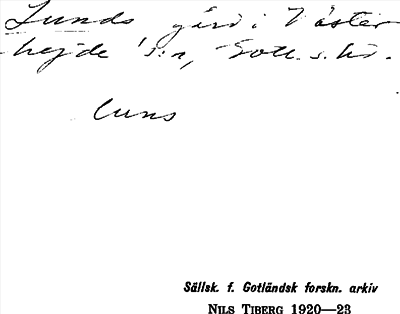 Lunds gård i Väster
hejde s:n, Gotl. s. hd.
luns
Sällsk. f. Gotländsk forskn. arkiv
NILS TIBERG 1920—23